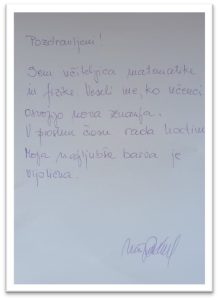 Pozdravljeni!
Sem učiteljica matematike
in fizike. Veseli me, ko učenci
osvojijo nova znanja.
V prostem času rada hodim
Moja najljubša barva je
vijolična.